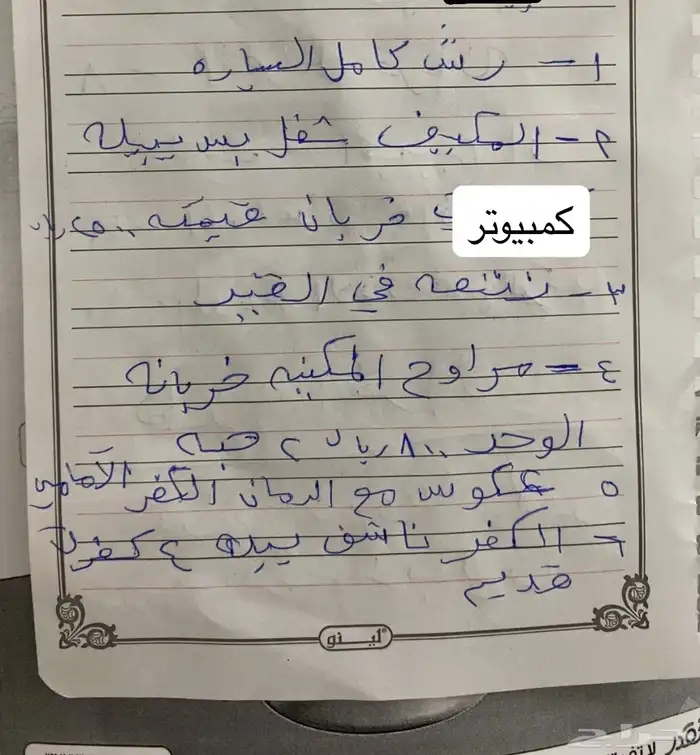 ١ – رش كامل السياره
٢ – المكيف شغل بس يبيله
كمبيوتر خربان قيمته
٣ – نتعه في القير
٤ – مراوح المكينه خربانه
الوحد ٨٠٠ ريال ٢ حبه
٥ عكوس مع الرمان الكفر الأمامي
٦ – الكفر ناشف يبيله ٤ كفر
قديم
لينو
حراج